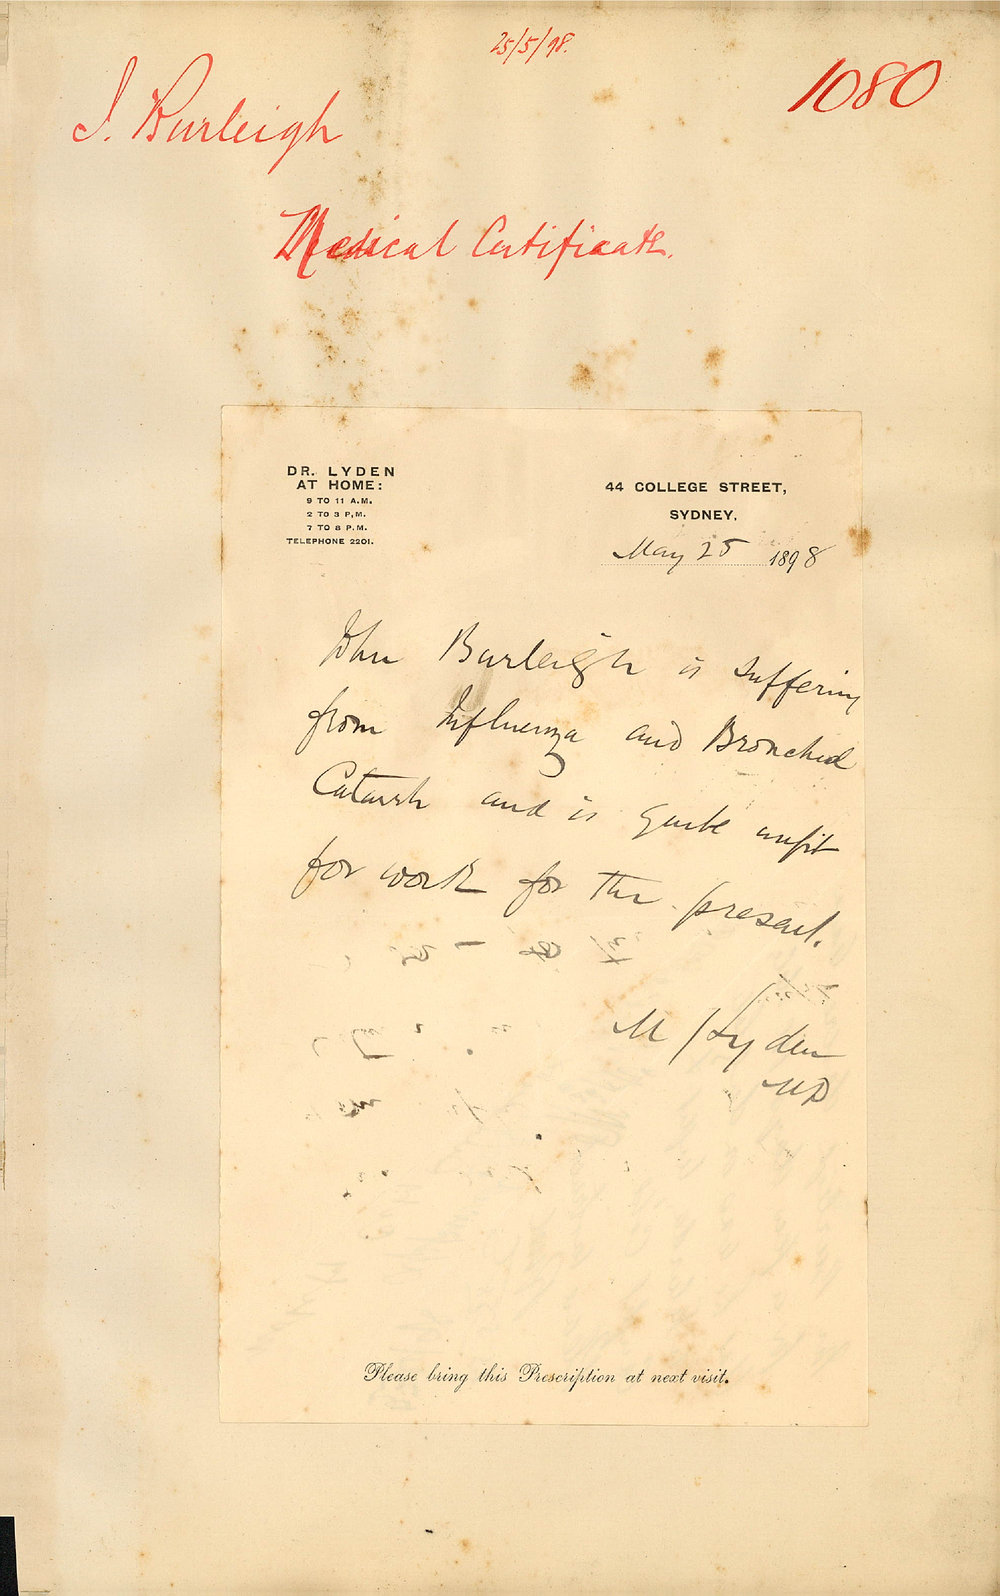 25/5/98.
1080
J. Burleigh
Medical Certificate.
DR. LYDEN
AT HOME:
9 TO 11 A.M.
2 TO 3 P.M.
7 TO 8 P.M.
TELEPHONE 2201.
44 COLLEGE STREET,
SYDNEY.
May 25 1898
John Burleigh is suffering
from Influenza and Bronchial
Catarrh and is quite unfit
for work for the present.
M Lyden
MD
Please bring this Prescription at next visit.